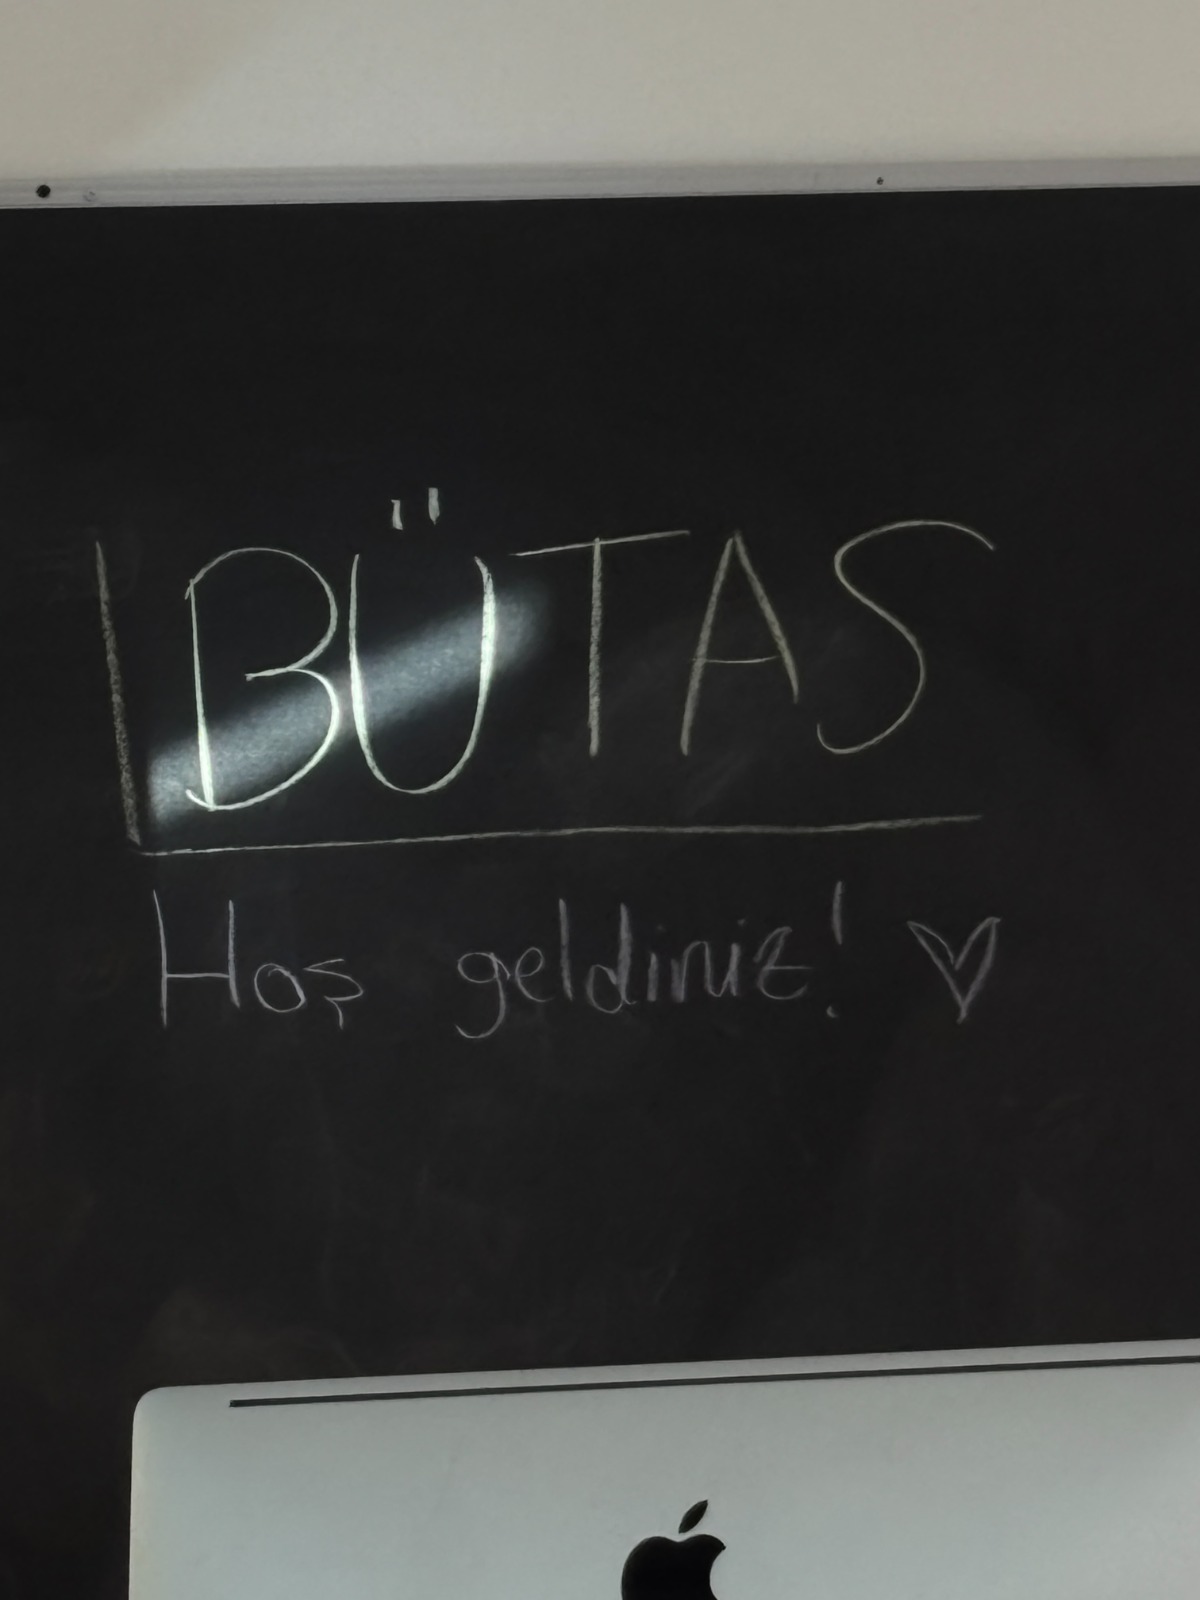 BÜTAS
Hoş geldiniz! ♡